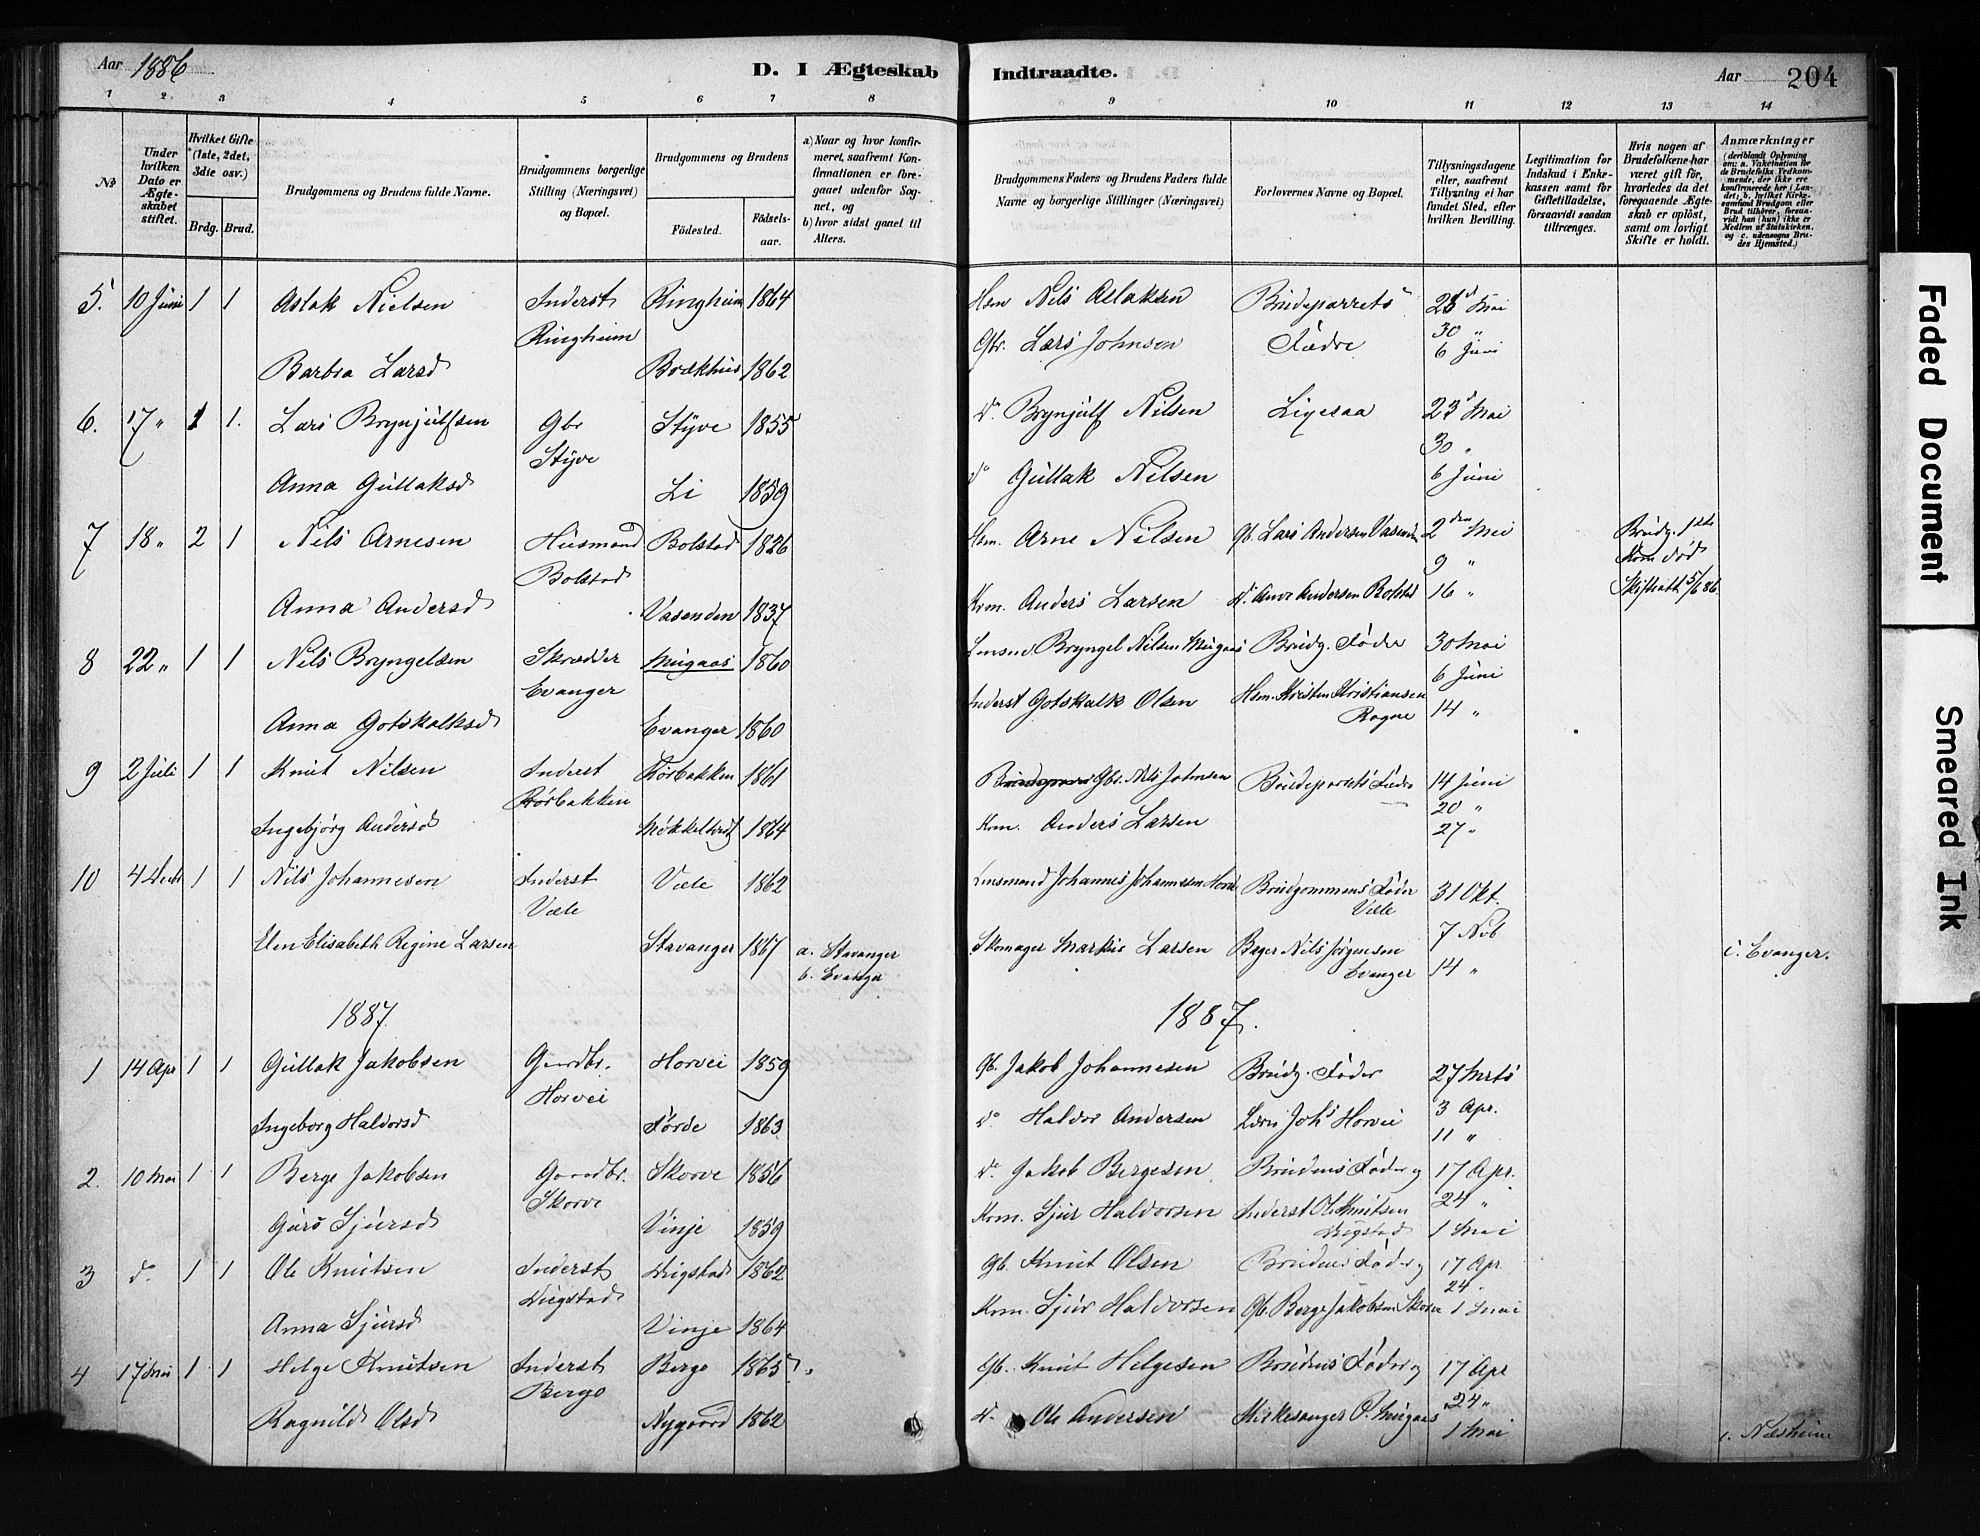 Aar 1886
D. I Ægteskab
Indtraadte.
Aar
204
1 2 3 4 5 6 7 8 9 10 11 12 13 14
No
Under hvilken Dato er Ægteskabet stiftet.
Hvilket Gifte (1ste, 2det, 3die osv.)
Brdg. Brud.
Brudgommens og Brudens fulde Navne.
Brudgommens borgerlige Stilling (Næringsvei) og Bopæl.
Brudgommens og Brudens
Fødested.
Fødselsaar.
a) Naar og hvor konfirmeret, saafremt Konfirmationen er foregaaet udenfor Sognet, og
b) hvor sidst gaaet til Alters.
Brudgommens Faders og Brudens Faders fulde Navne og borgerlige Stillinger (Næringsvei)
Forlovernes Navne og Bopæl.
Tillysningsdagene eller, saafremt Tillysning ei har fundet Sted, efter hvilken Bevilling.
Legitimation for Indskud i Enkekassen samt for Giftetilladelse, forsaavidt saadan tiltrænges.
Hvis nogen af Brudefolkene har været gift før, hvorledes da det foregaaende Ægteskab er opløst, samt om lovligt Skifte er holdt.
Anmærkninger
(deriblandt Oplysning om: a. Vaksination for de Brudefolks Vedkommende, der ikke ere konfirmerede her i Landet; b. hvilket Kirkesamfund Brudgom eller Brud tilhører, forsaavidt han (hun) ikke er Medlem af Statskirken, og c. udensogns Brudes Hjemsted.)
5. 10 Juni 1 1 Aslak Nielsen Inderst Ringheim 1864 Hsm Nils Aslaksen Brudeparrets 23 Mai
Ringheim Gbr. Lars Johnsen Fædre 30 "
6 Juni
Barbra Larsd Brækhus 1862
6. 17 " 1 1. Lars Brynjulfsen Gbr Styve 1855 do Brynjulf Nilsen Ligesaa 23 Mai
Styve 30 "
Anna Gullaksd Li 1859 do Gullak Nilsen 6 Juni
7 18 " 2 1 Nils Arnesen Husmand Bolstad 1826 Hsm. Arne Nilsen Gb. Lars Andersen Vasenden 2den Mai Brudg. 1ste
Bolstad 9 " Kone død
Anna Andersd Vasenden 1837 Krm. Anders Larsen 16 " Skifteatt 5/6 86.
8 22 " 1 1 Nils Bryngelsen Skrædder Mugaas 1860 Lensmd Bryngel Nilsen Mugaas Brudg. Fader 30 Mai
Evanger 6 Juni
Anna Gotskalksd Evanger 1860 Inderst Gotskalk Olsen Hsm. Kristen Kristiansen 14 "
9 2 Juli 1 1 Knut Nilsen Inderst Rørbakken 1861 Gbr. Nils Johnsen Brudeparrets Fædre 14 Juni
Rørbakken 20 "
Ingebjørg Andersd 1864 Krm. Anders Larsen 27 "
10 4 Decbr 1 1 Nils Johannesen Inderst Væle 1862 Lensmand Johannes Johannessen Brudgommens Fader 31 Okt.
Væle Væle
Elen Elisabeth Regine Larsen Stavanger 1867 a. Stavanger Skomager Markus Larsen Bager Nils Jørgensen 7 Nob c. Evanger.
b. Evanger Evanger 14 "
1887. 1887.
1 14 Apr 1 1 Gullak Jakobsen Gaardbr. Horvei 1859 Gb. Jakob Johannesen Brudg. Fader 27 Mrts
Horvei 3 Apr.
Ingeborg Haldorsd Førde 1863 do Haldor Andersen Lars Johs Horvei 11 "
2. 10 Mai 1 1 Berge Jakobsen Gaardbr. Skorve 1856 do Jakob Bergesen Brudens Fader og 17 Apr.
Skorve 24 "
Guro Sjursd Vinje 1859 Krm. Sjur Haldorsen Inderst Ole Knutsen 1 Mai
3 do 1 1 Ole Knutsen Inderst 1862 Gb. Knut Olsen Brudens Fader og 17 Apr.
24 "
Anna Sjursd Vinje 1864 Krm. Sjur Haldorsen Gb. Berge Jakobsen Skorve 1 Mai
4 17 Mai 1 1 Helge Knutsen Inderst Berge 1865 Gb. Knut Helgesen Brudens Fader og 17 Apr
Berge 24 "
Ragnild Olsd Nygaard 1862 do Ole Andersen Kirkesanger P. Mugaas 1 Mai
Faded Document
Smeared Ink